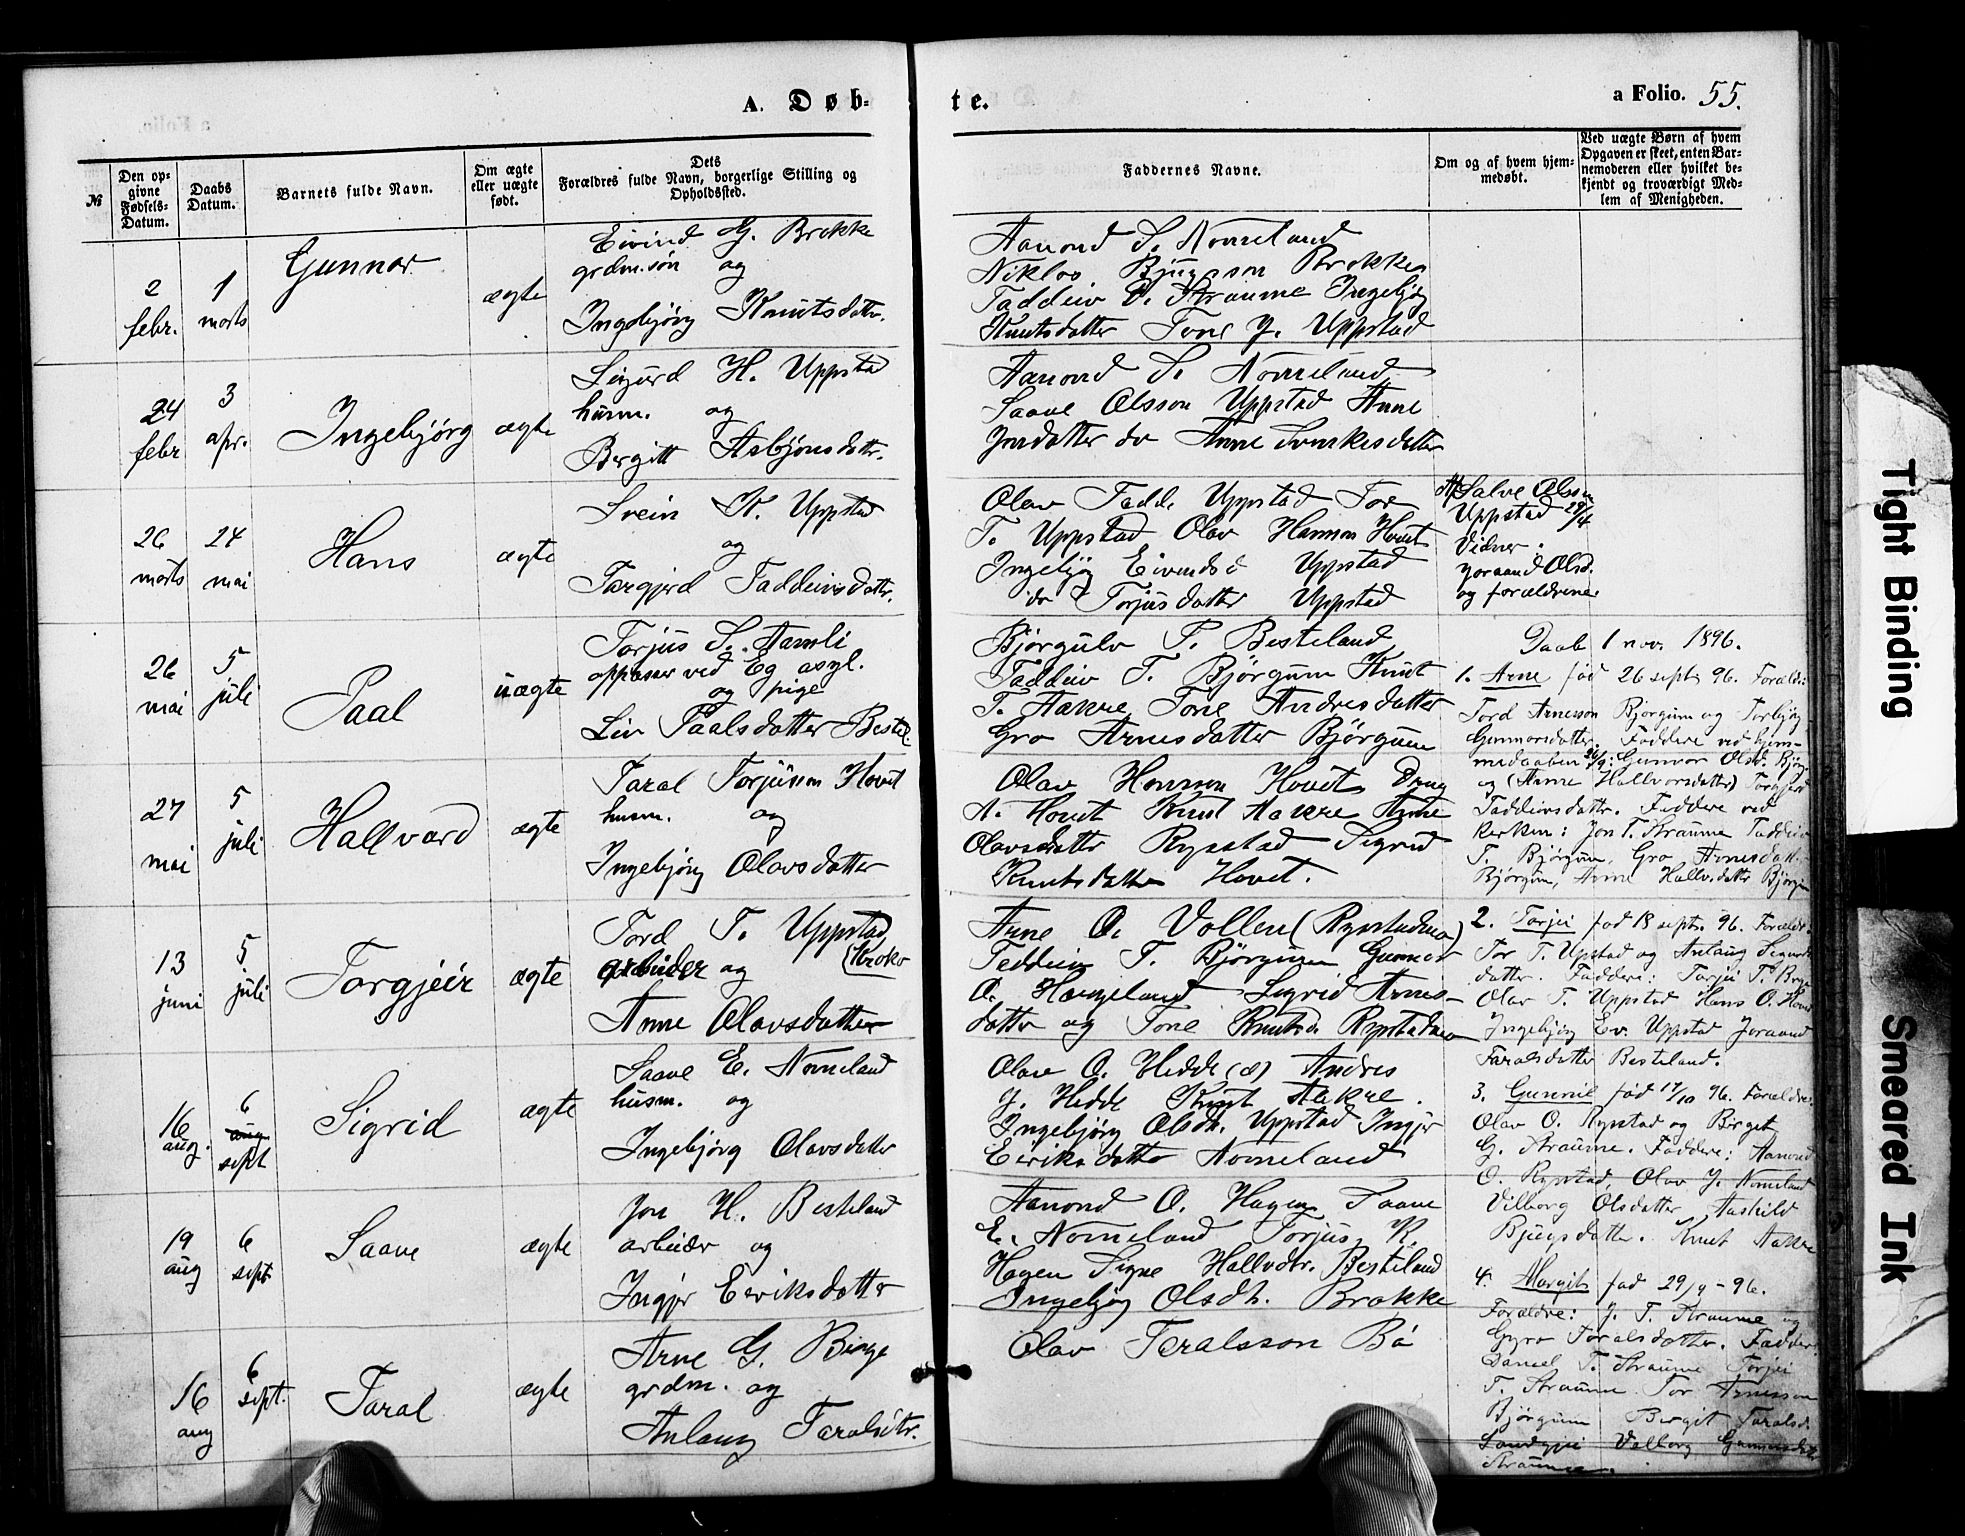 A. Døb-
te.
a Folio. 55.
№
Den op-
givne
Fødsels-
Datum.
Daabs
Datum.
Barnets fulde Navn.
Om ægte
eller uægte
født.
Dets
Forældres fulde Navn, borgerlige Stilling og
Opholdssted.
Faddernes Navne.
Om og af hvem hjem-
medøbt.
Ved uægte Børn af hvem
Opgaven er skeet, enten Bar-
nemoderen eller hvilket be-
kjendt og troværdigt Med-
lem af Menigheden.
2
febr.
1
marts
Gunnar
ægte
Eivind G. Brokke
grdm.søn og
Ingebjörg Knutsdatter.
Aanond S. Nomeland
Niklos Bjugsson Brokke
Taddeiv D. Straume Ingebjög
Knutsdatter Tone J. Uppstad
24
febr
3
apr.
Ingebjørg
ægte
Sigurd H. Uppstad
husm. og
Bergitt Asbjönsdattr.
Aanond S. Nomeland
Saave Olsson Uppstad Anne
Jonsdatter do Anne Sveinkesdatter
26
marts
24
mai
Hans
ægte
Svein K. Uppstad
og
Targjerd Taddeivsdattr.
Olav Tadd. Uppstad Tor
T. Uppstad Olav Hanson Hovet
Ingebjög Eivinds Uppstad
do Torjusdatter Uppstad
Af Salve Olsson
Uppstad 29/4
Vidner:
Joraand Olsd.
og forældrene
26
mai
5
juli
Paal
uægte
Torjus S. Aamli
oppasser ved Eg asyl.
og pige
Liv Paalsdatter Bestel.
Bjørgulv P. Besteland
Taddeiv T. Bjørgum Knut
T. Aakre Tone Andresdatter
Gro Arnesdatter Bjørgum
27
mai
5
juli
Hallvard
ægte
Taral Torjusson Hovet
husm. og
Ingebjörg Olavsdatter
Olav Honson Hovet Dreng
A. Hovet Knut Aakre Anne
Olavsdatter Rysstad Sigrid
Knutsdatter Hovet.
13
juni
5
juli
Torgjeir
ægte
Tord T. Uppstad
(Kroko
arbeider og
Anne Olavsdatter
Arne O. Vollen (Rysstadmo)
Teddeiv T. Bjørgum Gunnar
O. Haugeland Sigrid Arnes-
datter og Tone Knutsd. Rysstadmo
16
aug.
6
aug
sept
Sigrid
ægte
Saave E. Nomeland
husm. og
Ingebjörg Olavsdatter
Olav O. Hedde (æ) Andres
J. Hedde Knut Aakre.
Ingebjörg Olsdtr. Uppstad Ingjer
Eiriksdatter Nomeland
19
aug
6
sept
Saave
ægte
Jon H. Besteland
arbeider og
Ingjer Eeriksdatter
Aanond O. Hagen Saave
E. Nomeland Torjus K.
Hagen Signe Hallvdtr. Besteland
Ingebjög Olsdtr. Brokke
16
aug
6
sept.
Taral
ægte
Arne G. Birge
grdm. og
Anlaug Taralsdtr.
Olav Teralsson Bö
Daab 1 nov. 1896.
1. Arne fød 26 sept. 96. Forældre:
Tord Arnesson Bjørgum og Torbjög
Gunnarsdatter. Faddere ved hjem-
medaaben 26/9: Gunvor Olsd. Bjørg.
og (Anne Hallvorsdatter) Torgjerd
Taddeivsdattr. Faddere ved
kirken: Jon T. Straume Taddeiv
T. Bjørgum, Gro Arnesdatt.
Bjørgum, Anne Hallvdatter Bjørgum
2. Torjei fød 18 sept. 96. Forældr.
Tor T. Uppstad og Anlaug Sigurds
datter. Faddere: Torjei T. Bygl
Olav T. Uppstad Hans O. Hovet
Ingebjög Ev. Uppstad Joraand
Taralsdatter Besteland.
3. Gunvil fød 17/10 96. Forældre:
Olav O. Rysstad og Birgit
G. Straume. Faddere: Aanond
O. Rysstad, Olav J. Nomeland
Vilborg Olsdatter Aashild
Bjugsdatter. Knut Aakre
4. Margit fød 29/9 - 96.
Forældre: J. T. Straume og
Gyro Toralsdatter. Faddere
Daniel T. Straume Torjei
T. Straume Tor Arnesson
Bjørgum Bergit Taralsd.
Valborg Gunnarsdatter
Straume.
Tight Binding
Smeared Ink